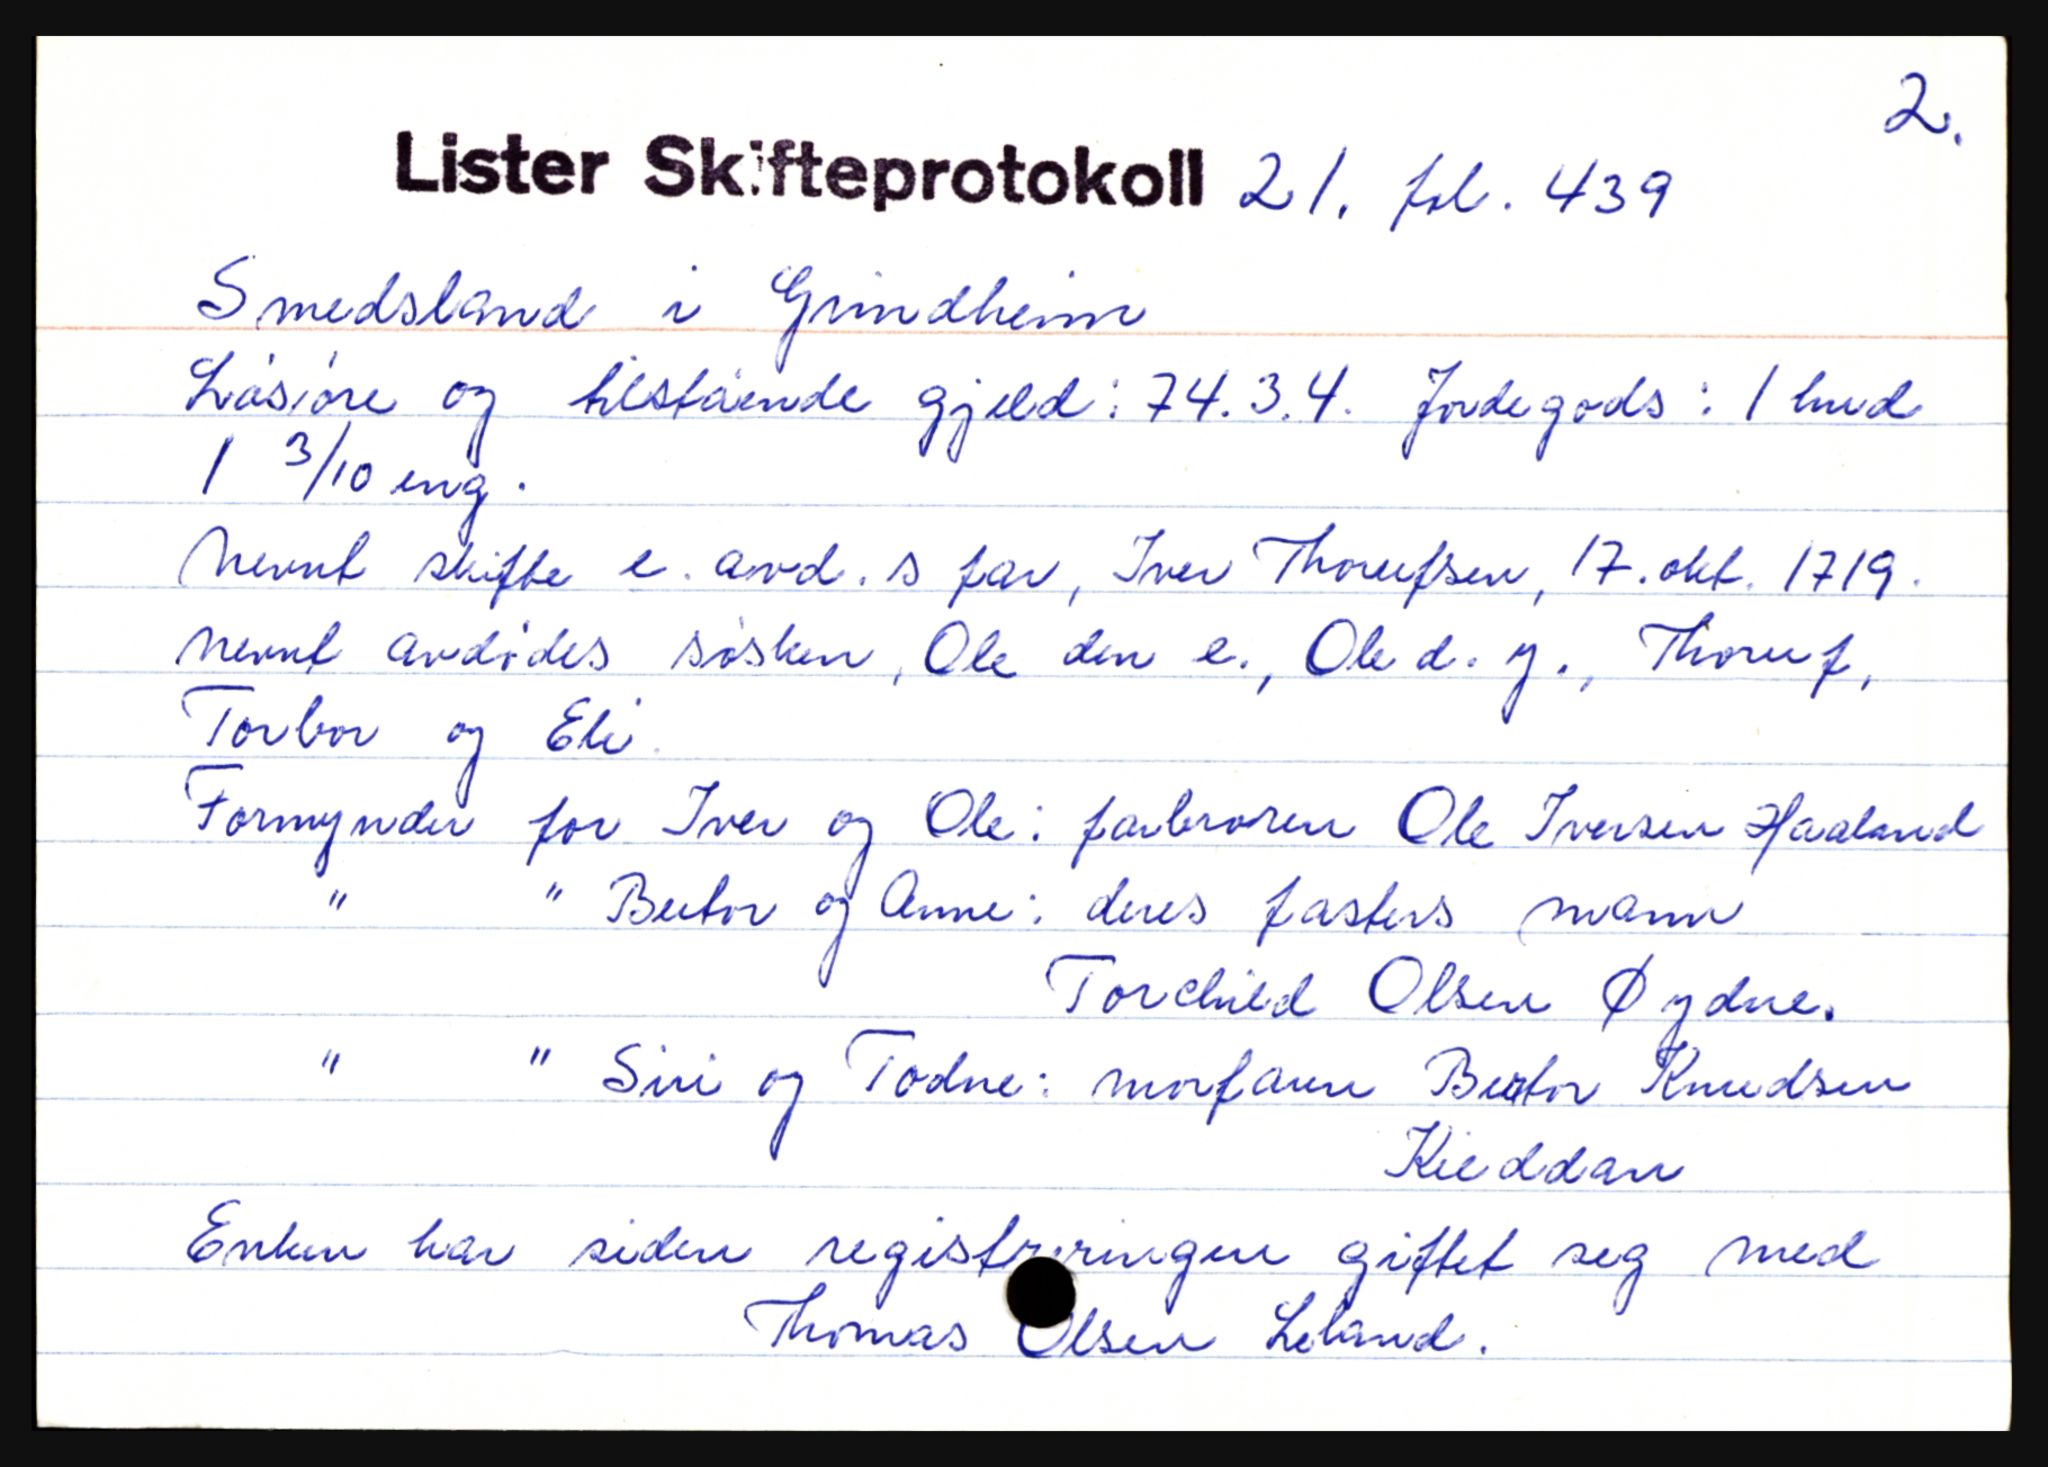 2.
Lister Skifteprotokoll 21. fol. 439
Smedsland i Grindheim
Løsøre og tilstående gjeld: 74.3.4. Jordegods: 1 hud
1 3/10 eng.
Nevnt skifte e. avd.s far, Iver Thorufsen, 17. okt. 1719.
Nevnt avdødes søsken, Ole den e., Ole d. y., Thoruf,
Torbor og Eli.
Formynder for Iver og Ole: farbroren Ole Iversen Haaland
" " Beitor og Anne: deres fasters mann
Torchild Olsen Øydne.
" " Siri og Todne: morfaren Beitor Knudsen
Kieddan
Enken har siden registreringen giftet seg med
Thomas Olsen Leland.